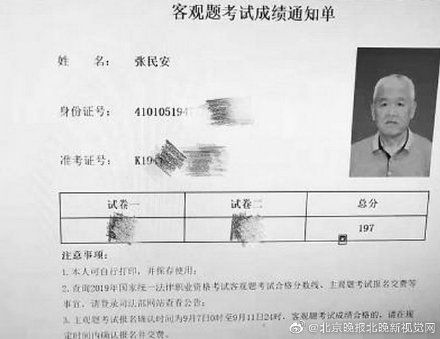 客观题考试成绩通知单
姓 名： 张民安
身份证号： 410105194
准考证号： K19
试卷一 试卷二 总分
197
注意事项：
1.本人可自行打印，并保存使用；
2.查询2019年国家统一法律职业资格考试客观题考试合格分数线、主观题考试报名交费等
事宜，请登录司法部网站查看公告；
3.主观题考试报名确认时间为9月7日0时至9月11日24时，客观题考试成绩合格的，请在规
定时间内确认报名并交费。
@北京晚报北晚新视觉网